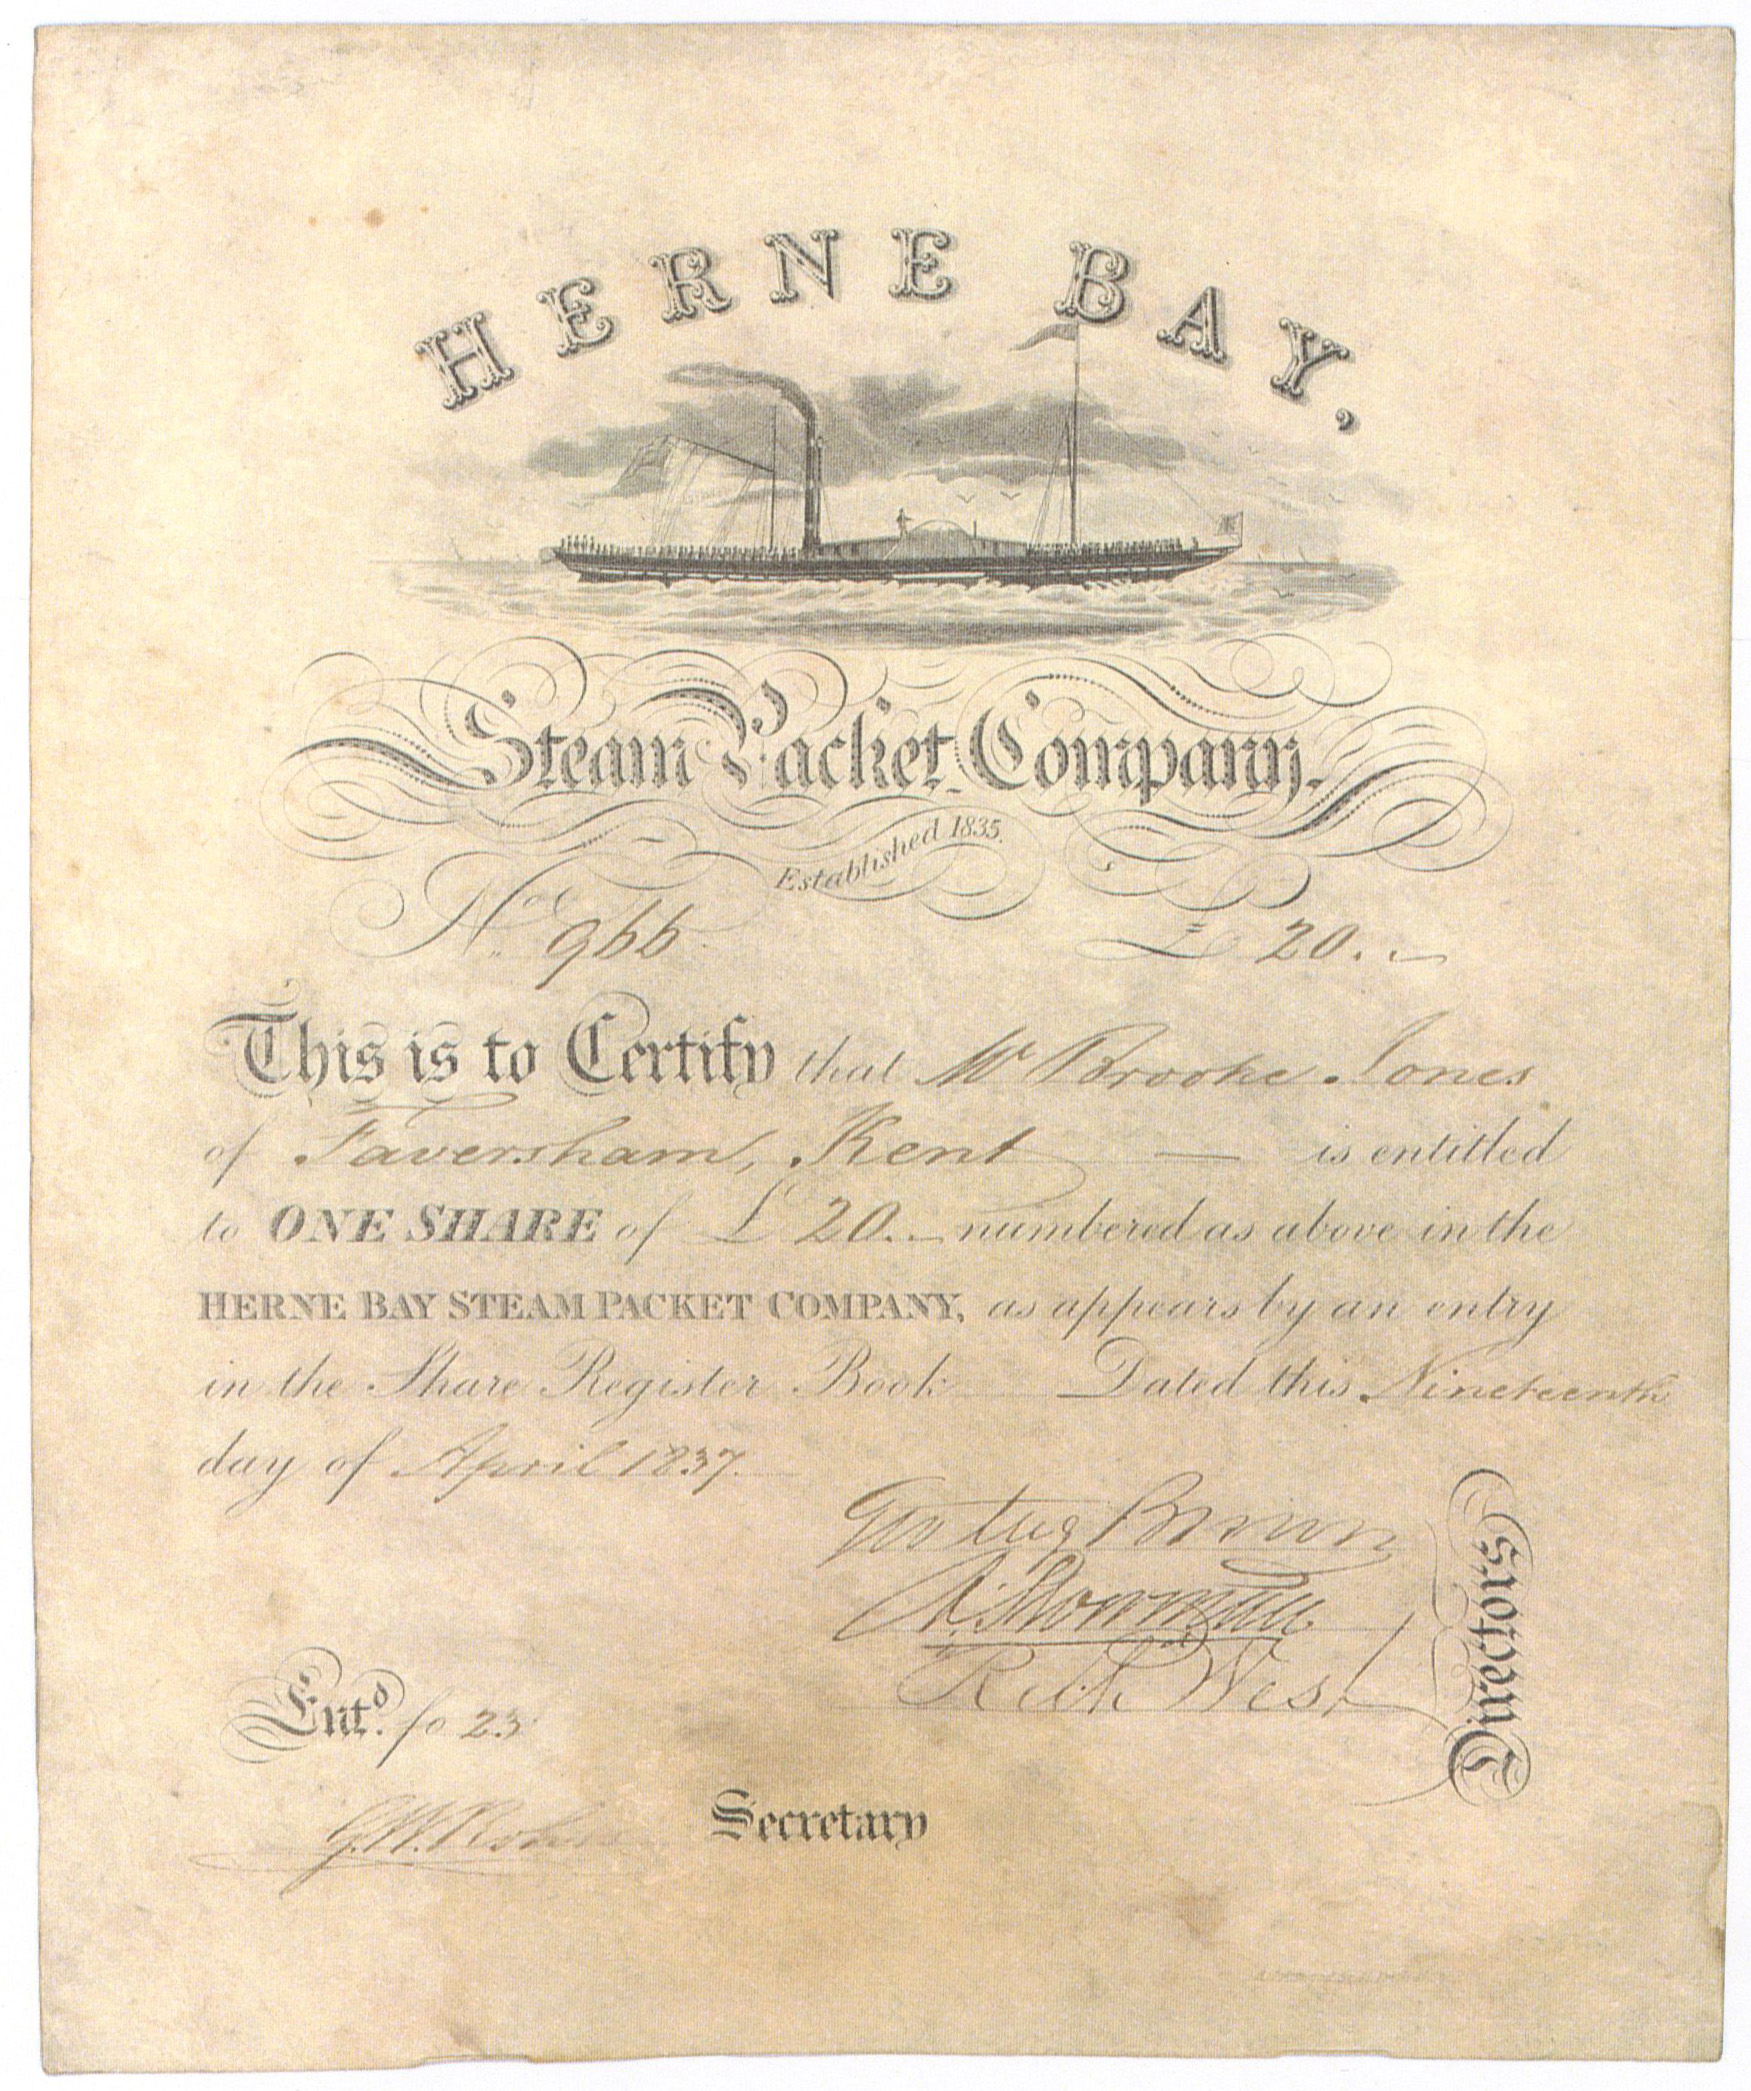 HERNE BAY,
Steam Packet Company.
Established 1835.
No. 966. £20..
This is to Certify that Mr Brooke Jones
of Faversham, Kent — is entitled
to ONE SHARE of £20.. numbered as above in the
HERNE BAY STEAM PACKET COMPANY, as appears by an entry
in the Share Register Book Dated this Nineteenth
day of April 1837.
Brown
Directors
West
Entd. fo 23
G.W. Secretary